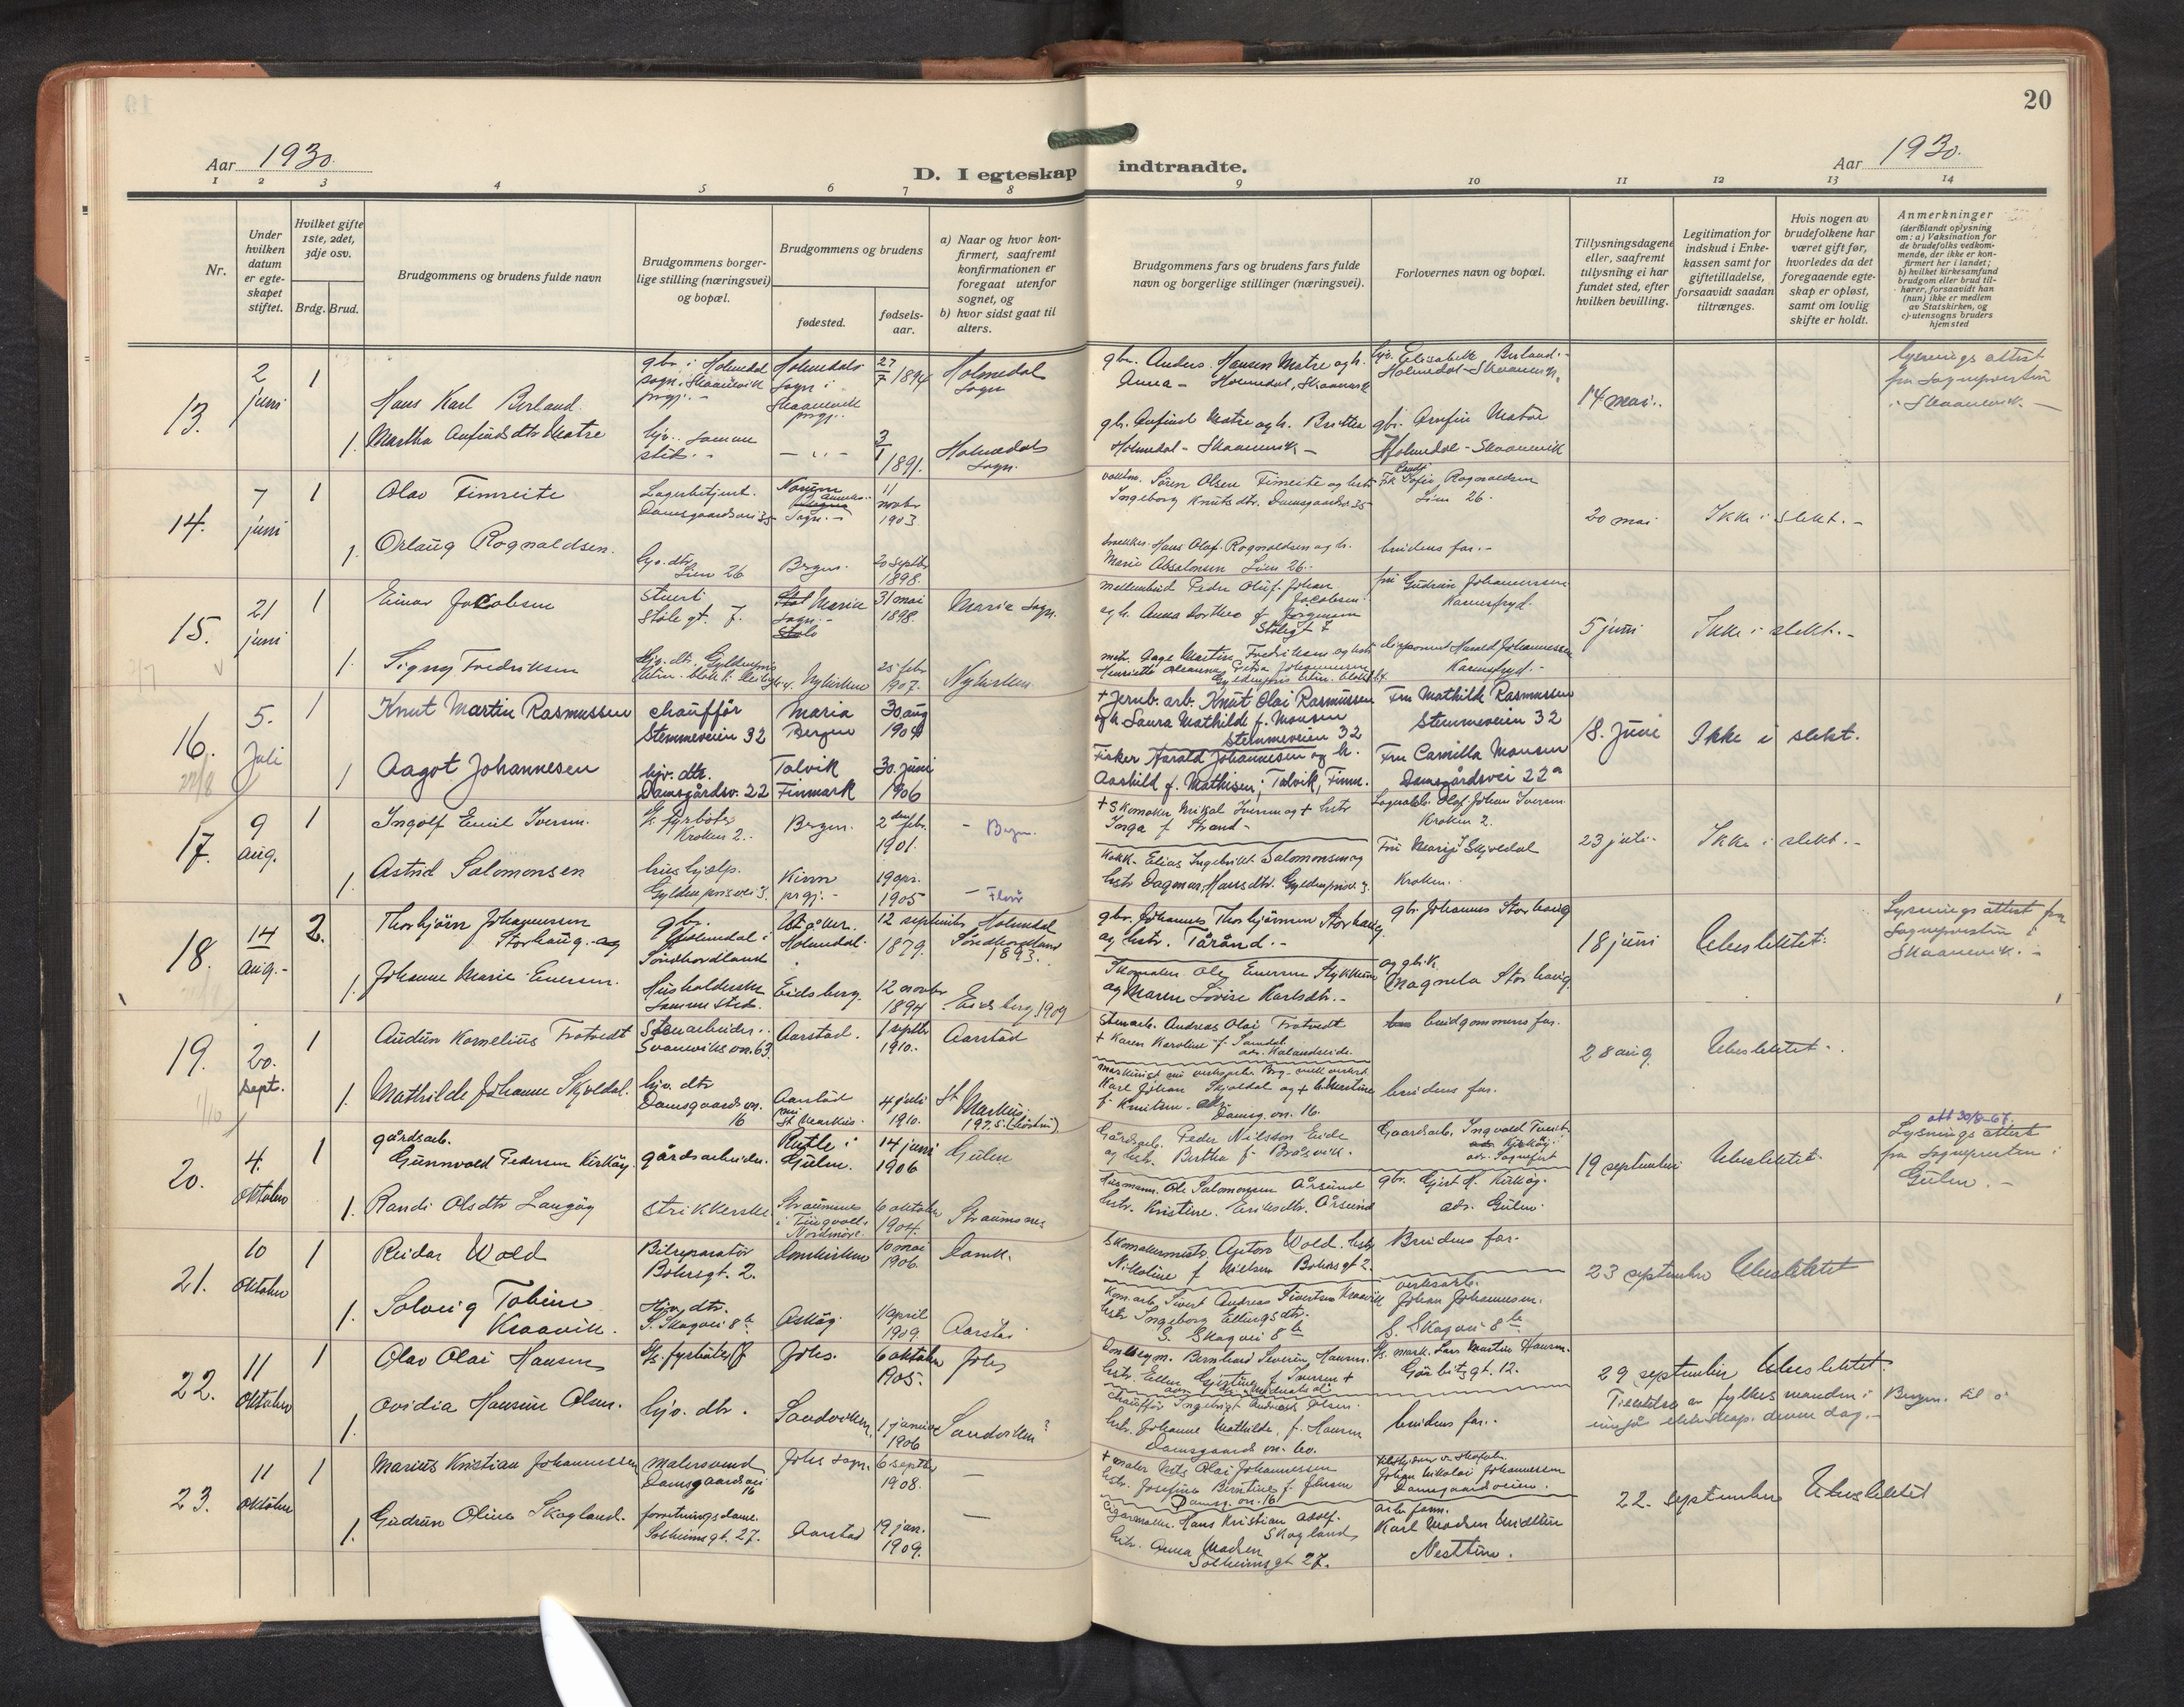 20
Aar 1930.
D. I egteskap indtraadte.
Aar 1930.
1 2 3 4 5 6 7 8 9 10 11 12 13 14
Nr.
Under hvilken datum er egteskapet stiftet.
Hvilket gifte 1ste, 2det, 3dje osv.
Brdg. Brud.
Brudgommens og brudens fulde navn
Brudgommens borgerlige stilling (næringsvei) og bopæl.
Brudgommens og brudens
fødested.
fødselsaar.
a) Naar og hvor konfirmert, saafremt konfirmationen er foregaat utenfor sognet, og
b) hvor sidst gaat til alters.
Brudgommens fars og brudens fars fulde navn og borgerlige stillinger (næringsvei).
Forlovernes navn og bopæl.
Tillysningsdagene eller, saafremt tillysning ei har fundet sted, efter hvilken bevilling.
Legitimation for indskud i Enkekassen samt for giftetilladelse, forsaavidt saadan tiltrænges.
Hvis nogen av brudefolkene har været gift før, hvorledes da det foregaaende egteskap er opløst, samt om lovlig skifte er holdt.
Anmerkninger (deriblandt oplysning om: a) Vaksination for de brudefolks vedkommende, der ikke er konfirmert her i landet; b) hvilket kirkesamfund brudgom eller brud tilhører, forsaavidt han (hun) ikke er medlem av Statskirken, og c) utensogns bruders hjemsted
13.
2 juni
1
Hans Karl Berland.
gbr. i Holmedal sogn, Skaanevik prgj.
Holmedals sogn i Skaanevik prgj.
27/7 1894
Holmedal sogn
gbr. Anders Hansen Matre og h. Anna - Holmedal, Skaanevik
Elisabeth Berland. Holmedal - Skaanevik.
14 mai.
lysnings attest fra sognepresten i Skaanevik.
1. Martha Anfinds dtr. Matre
hjv. samme sted.
- " -
3/1 1891.
Holmedals sogn.
gb. Anfind Matre og h. Brita Holmedal - Skaanevik -
gb. Arnfin Matre Holmedal - Skaanevik
14.
7 juni
1
Olav Fimreite
Lagerbetjent. Damsgaardsvei 35
Sogn.
11 novbr 1903
Sören Olsen Fimreite og hstr Ingeborg Knuts dtr. Damsgaardsv. 35
Sofie Rognaldsen Lien 26.
20 mai
Ikke i slekt.
1. Orlaug Rognaldsen.
hjv. dtr. Lien 26
Bergen.
20 septbr 1898.
Hans Olaf Rognaldsen og h. Marie Absalonsen Lien 26.
brudens far.
15.
21 juni
1
Einar Jacobsen
Stuert Stölegt. 7.
Maria sogn.
31 mai 1898.
Maria sogn.
Peder Oluf Johan Jacobsen og h. Anna Dorthea f. Jörgensen Stölegt 7
fru Gudrun Johannessen
5 juni
Ikke i slekt.
1. Signy Fredriksen
hjv. dtr. Gyldenpris
Nykirken
25 febr 1907.
Nykirken
Aage Martin Fredriksen og hstr Henriette
disponent Harald Johannessen
16.
5. Juli
1
Knut Martin Rasmussen
chauffør Stemmeveien 32
Maria Bergen
30. aug 1904
+ Jernb. arb. Knut Olai Rasmussen og h. Laura Mathilde f. Monsen Stemmeveien 32
Fru Mathilde Rasmussen Stemmeveien 32
18. Juni
Ikke i slekt.
1 Aagot Johannesen
hjv. dtr. Damsgårdsv. 22
Talvik Finmark
30. juni 1906
Fisker Harald Johannesen og h. Aashild f. Mathisen; Talvik, Finm.
Fru Camilla Monsen Damsgårdsvei 22a
17.
9 aug.
1
Ingolf Emil Iversen.
fyrböter Kroken 2.
Bergen.
2den febr. 1901.
- Bergen.
+ Skomaker Mikal Iversen og + hstr Inga f Strand -
Olaf Johan Iversen. Kroken 2.
23 juli.
Ikke i slekt.
1. Astrid Salomonsen
hushjælp. Gyldenprisvei 3.
Kinn prgj.
19 apr. 1905
- Florö
Kokk - Elias Ingebrikt Salomonsen og hstr Dagmar, Hans dtr. Gyldenprisv. 3.
Fru Marie Skjeldal Kroken.
18.
14 aug.
2.
Thorbjörn Johannessen Storhaug.
gbr. Holmedal i Söndhordland
Holmedal.
12 september 1879.
Holmedal Söndhordland 1893.
gbr. Johannes Thorbjörnsen Storhaug og hstr. Tårånd.
gb. Johannes Storhaug
18 juni
Ubeslektet.
Lysnings attest fra sognepresten i Skaanevik.
1. Johanne Marie Enersen.
Husholderske samme sted.
Eidsberg.
12 novbr 1894
Eidsberg 1909
Ole Enersen og Maren Lovise Karlsdtr.
og gb.k. Magnela Storhaug
19.
20. sept.
1
Audun Kornelius Trotvedt
Stenarbeider. Svaneviksvn. 63.
Aarstad.
1 septbr 1910.
Aarstad
Stenarb. Andreas Olai Trotvedt + Karen Karoline f. Samdal
brudgommens far.
28 aug.
Ubeslektet.
1. Mathilde Johanne Skjeldal.
hjv. dtr Damsgaardsvn. 16
Aarstad nu St Markus.
4 juli 1910.
St Markus. 1925.
Karl Johan Skjeldal f. Knutsen. Damsg. vn. 16.
brudens far.
20.
4. Oktober
1
gårdsarb. Gunnvald Pedersen Kirköy.
gårdsarbeider.
Rutle i Gulen.
14 juni 1906
Gulen
Gårdsarb. Peder Nilsson Eide og hstr. Bertha f.
Gaardsarb. Ingvald
19 september
Ubeslektet
att 30/8-67.
Lysnings attest fra sognepresten i Gulen.
1. Randi Olsdtr Langöy
strikkerske
Straumsnes i Tingvoll. Nordmöre.
6 oktober 1904.
Straumsnes
Husmann. Ole Salomonsen Årsund hstr. Kristine. Eriksdtr. Årsund
adr. Gulen.
21.
10 Oktober
1
Reidar Wold
Bilreparatör Bohrsgt. 2.
Domkirken
10 mai 1906.
Domk.
Skomakermestr. Wold. hstr Nikoline f Nielsen Bohrsgt 2.
Brudens far.
23 september
Ubeslektet
1. Solveig Tobine Kraavik.
Hjv. dtr. S. Skogvei 8b.
Asköy
11 april 1909.
Aarstad
Kom.arb. Sivert Andreas Sivertsen Kraavik hstr Ingeborg Ellingsdtr. S. Skogvei 8b
verksarb. Johan Johannesen. S. Skogvei 8b
22.
11 Oktober
1
Olav Olai Hansen
fyrböter
Johs.
6 oktober 1905.
Johs
Bernhard Severin Hansen.
Lars Martin Hansen. Görbitzgt. 12.
29 september
Ubeslektet.
Tillatelse av fylkesmanden i Bergen til å inngå ekteskap denne dag.
1. Ovidia Hansine Olsen.
hjv. dtr.
Sandviken.
1 januar 1906
Sandviken?
chaufför Ingebrigt Andreas Olsen. hstr. Johanne Mathilde, f. Hansen Damsgaardsvn. 60.
brudens far.
23.
11 oktober
1
Marius Kristian Johannessen
malersvend Damsgaardsvei 16
Johs sogn.
6 septbr 1908.
-
+ maler Nils Olai Johannessen hstr. Josefine Berntine f. Jensen Damsg. vn. 16
Johan Nikolai Johannessen Damsgaardsveien.
22. september
Ubeslektet
1. Gudrun Oline Skogland.
forretningsdame. Solheimsgt. 27.
Aarstad
19 jan. 1909.
-
Cigarmaker. Hans Kristian Adolf. Skogland hstr. Anna Madsen Solheimsgt 27.
Karl Madsen Midttun Nesttun.